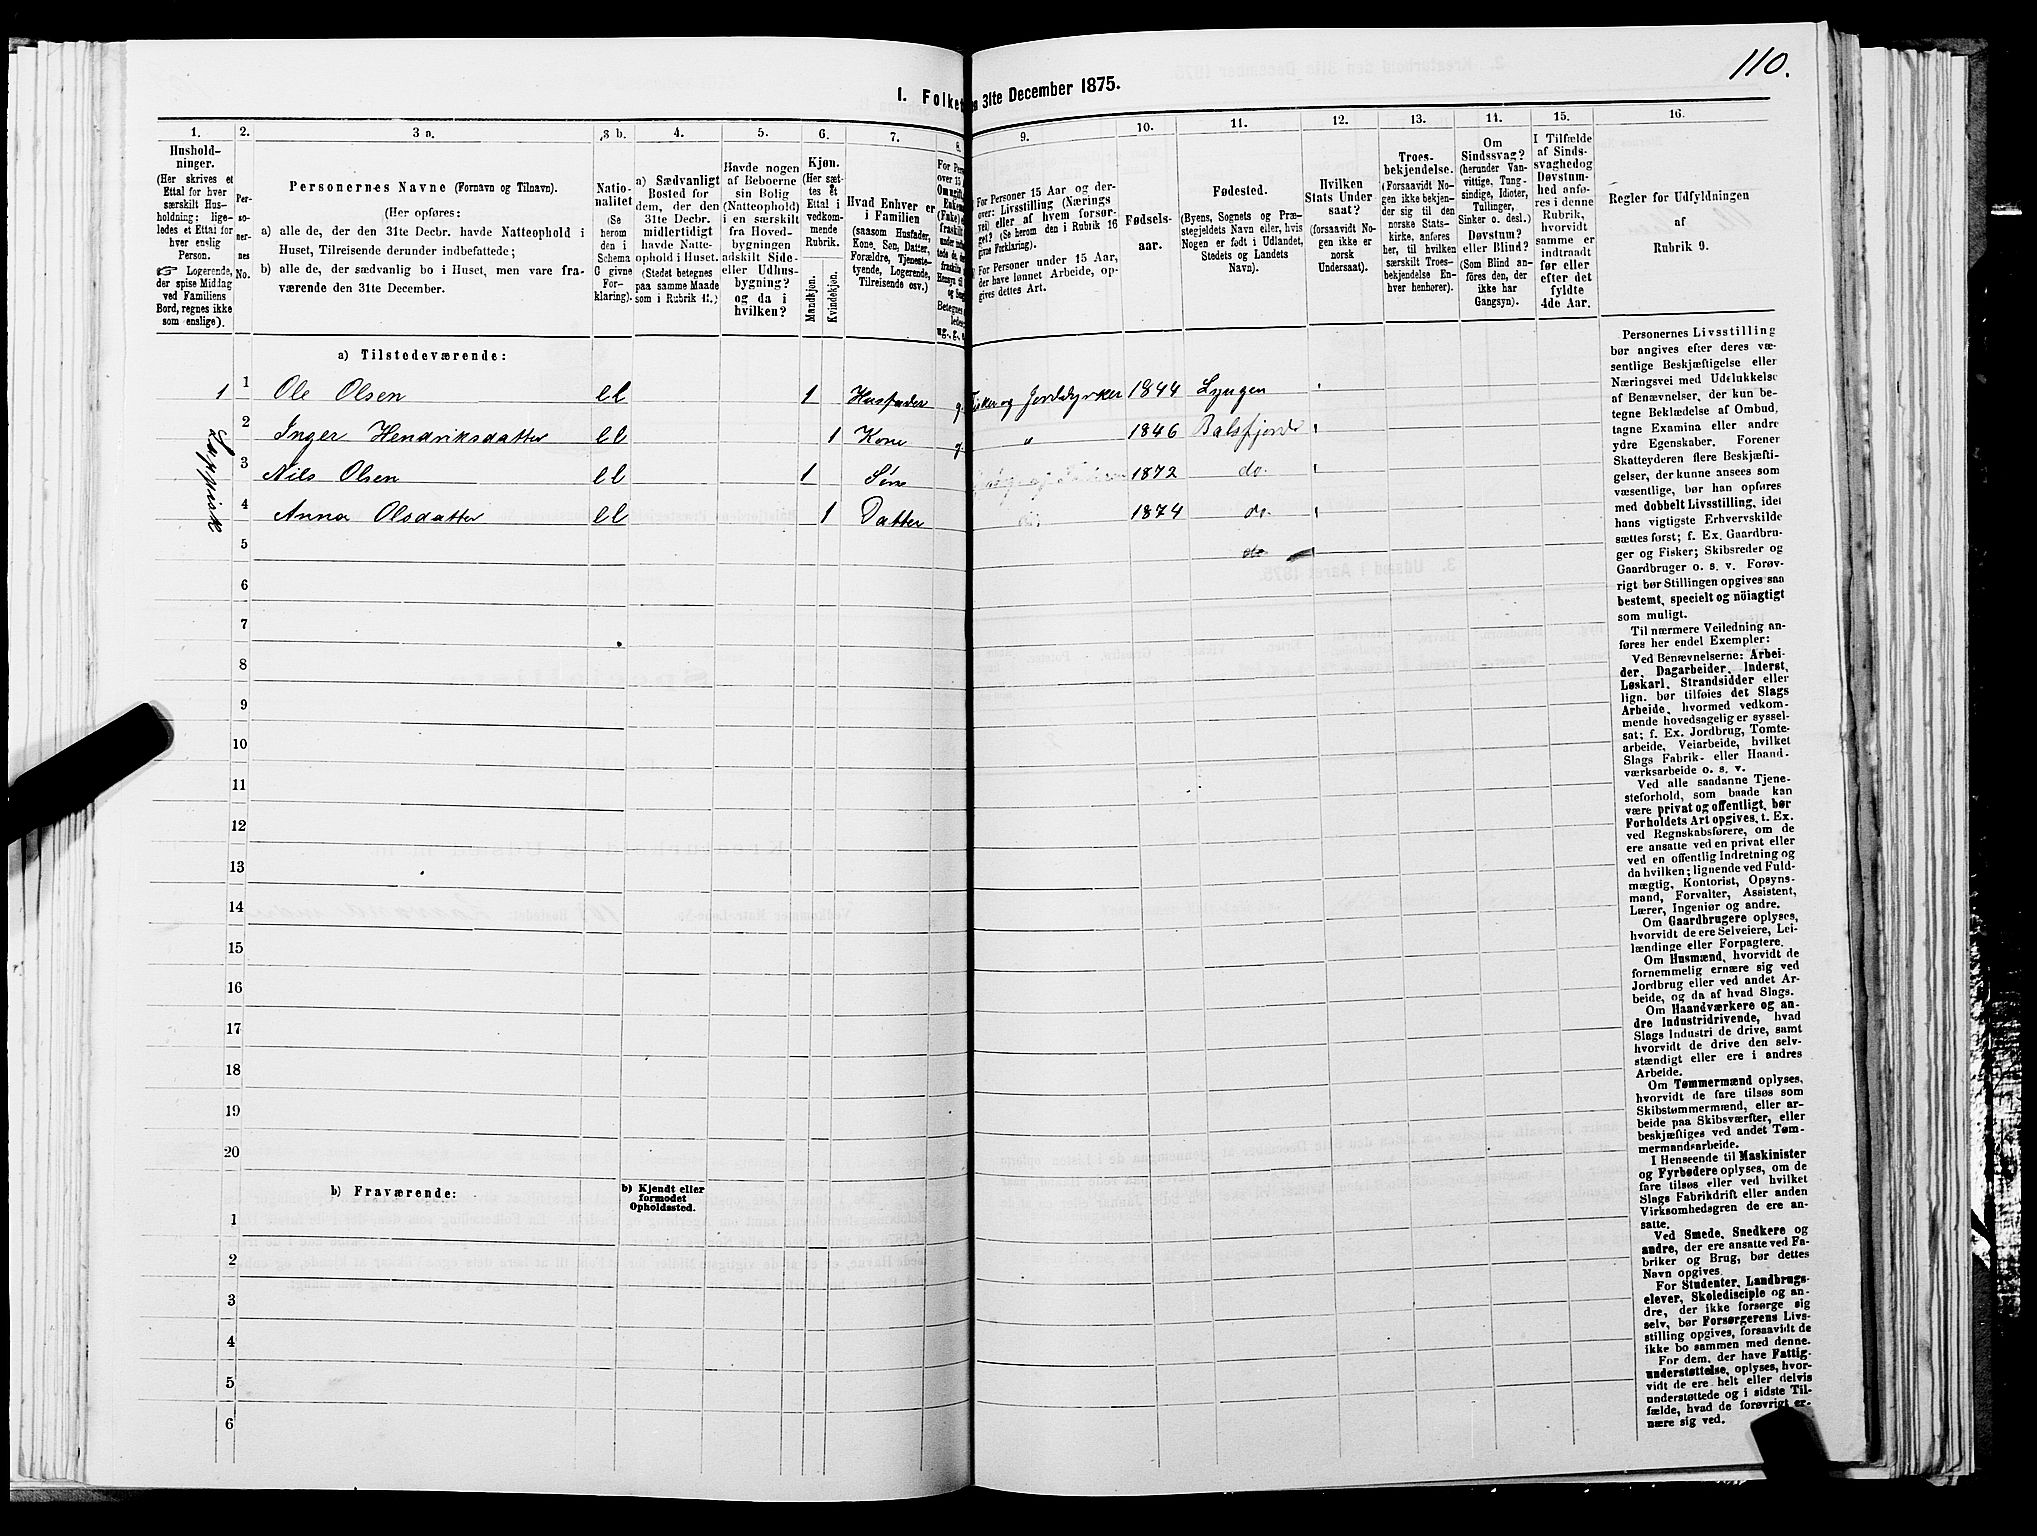 110.
I. Folket
n 31te December 1875.
1. 2. 3 a. 3 b. 4. 5. 6. 7. 8. 9. 10. 11. 12. 13. 14. 15. 16.
Hushold-
ninger.
(Her skrives et
Ettal for hver
særskilt Hus-
holdning; lige-
ledes et Ettal for
hver enslig
Person.
☞ Logerende,
der spise Middag
ved Familiens
Bord, regnes ikke
som enslige).
Per-
so-
ner-
nes
No.
Personernes Navne (Fornavn og Tilnavn).
(Her opføres:
a) alle de, der den 31te Decbr. havde Natteophold i
Huset, Tilreisende derunder indbefattede;
b) alle de, der sædvanlig bo i Huset, men vare fra-
værende den 31te December.
Natio-
nalitet
(Se
herom
den i
Schema
C givne
For-
klaring).
a) Sædvanligt
Bosted for
dem, der den
31te Decbr.
midlertidigt
havde Natte-
ophold i Huset.
(Stedet betegnes
paa samme Maade
som i Rubrik 11.)
Havde nogen
af Beboerne
sin Bolig
(Natteophold)
i en særskilt
fra Hoved-
bygningen
adskilt Side-
eller Udhus-
bygning?
og da i
hvilken?
Kjøn.
(Her sæt-
tes et
Ettal i
vedkom-
mende
Rubrik.
Mandkjøn.
Kvindekjøn.
Hvad Enhver er
i Familien
(saasom Husfader,
Kone, Søn, Datter,
Forældre, Tjeneste-
tyende, Logerende,
Tilreisende osv.)
For Personer 15 Aar og der-
over: Livsstilling (Nærings-
vei) eller af hvem forsør-
get? (Se herom den i Rubrik 16
givne Forklaring).
For Personer under 15 Aar,
der have lønnet Arbeide, op-
gives dettes Art.
Fødsels-
aar.
Fødested.
(Byens, Sognets og Præ-
stegjeldets Navn eller, hvis
Nogen er født i Udlandet,
Stedets og Landets
Navn).
Hvilken
Stats Under
saat?
(forsaavidt No-
gen ikke er
norsk
Undersaat).
Troes-
bekjendelse.
(Forsaavidt No-
gen ikke bekjen-
der sig til den
norske Stats-
kirke, anføres
her, til hvilken
særskilt Troes-
bekjendelse En-
hver henhører).
Om
Sindssvag?
(herunder Van-
vittige, Tung-
sindige, Idioter,
Tullinger,
Sinker o. desl.)
Døvstum?
eller Blind?
(Som Blind an-
føres den, der
ikke har
Gangsyn).
I Tilfælde
af Sinds-
svaghedog
Døvstum-
hed anfø-
res i denne
Rubrik,
hvorvidt
samme er
indtraadt
før eller
efter det
fyldte
4de Aar.
Regler for Udfyldningen
af
Rubrik 9.
a) Tilstedeværende:
1 1 Ole Olsen ll 1 Husfader g. Fisker og Jorddyrker 1844 Lyngen
2 Inger Hendriksdatter ll 1 Kone g. " 1846 Balsfjord
3 Nils Olsen ll 1 Søn 1872 do.
4 Anna Olsdatter ll 1 Datter do. 1874 do.
5 do
Lappisk
6
7
8
9
10
11
12
13
14
15
16
17
18
19
20
b) Fraværende:
b) Kjendt eller
formodet
Opholdssted.
1
2
3
4
5
6
Personernes Livsstilling
bør angives efter deres væ-
sentlige Beskjæftigelse eller
Næringsvei med Udelukkelse
af Benævnelser, der kun be-
tegne Beklædelse af Ombud,
tagne Examina eller andre
ydre Egenskaber. Forener
Skatteyderen flere Beskjæfti-
gelser, der kunne ansees som
væsentlige, bør han opføres
med dobbelt Livsstilling, idet
hans vigtigste Erhvervskilde
sættes først; f. Ex. Gaardbru-
ger og Fisker; Skibsreder og
Gaardbruger o. s. v. Forøv-
rigt bør Stillingen opgives saa
bestemt, specielt og nöiagtigt
som muligt.
Til nærmere Veiledning an-
føres her endel Exempler:
Ved Benævnelserne: Arbei-
der, Dagarbeider, Inderst,
Løskarl, Strandsidder eller
lign. bør tilføies det Slags
Arbeide, hvormed vedkom-
mende hovedsagelig er syssel-
sat; f. Ex. Jordbrug, Tomte-
arbeide, Veiarbeide, hvilket
Slags Fabrik- eller Haand-
værksarbeide o. s. v.
Ved alle saadanne Tjene-
steforhold, som baade kan
være privat og offentligt, bør
Forholdets Art opgives, t. Ex.
ved Regnskabsførere, om de
ere ansatte ved en privat eller
ved en offentlig Indretning og
da hvilken; lignende ved Fuld-
mægtig, Kontorist, Opsyns-
mand, Forvalter, Assistent,
Lærer, Ingeniør og andre.
Om Gaardbrugere oplyses,
hvorvidt de ere Selveiere, Lei-
lændinge eller Forpagtere.
Om Husmænd, hvorvidt de
fornemmelig ernære sig ved
Jordbrug eller ved andet Ar-
beide, og da af hvad Slags.
Om Haandværkere og an-
dre Industridrivende, hvad
Slags Industri de drive, samt
hvorvidt de drive den selv-
stændigt eller ere i andres
Arbeide.
Om Tømmermænd oplyses,
hvorvidt de fare tilsøs som
Skibstømmermænd, eller ar-
beide paa Skibsværfter, eller
beskjæftiges ved andet Tøm-
mermandsarbeide.
I Henseende til Maskinister
og Fyrbødere oplyses, om de
fare tilsøs eller ved hvilket
Slags Fabrikdrift eller anden
Virksomhedsgren de ere an-
satte.
Ved Smede, Snedkere og
andre, der ere ansatte ved Fa-
briker og Brug, bør dettes
Navn opgives.
For Studenter, Landbrugs-
elever, Skoledisciple og an-
dre, der ikke forsørge sig
selv, bør Forsørgerens Livs-
stilling opgives, forsaavidt de
ikke bo sammen med denne.
For dem, der have Fattig-
understøttelse, oplyses, hvor-
vidt de ere helt eller delvis
understøttede og i sidste Til-
fælde, hvad de forøvrigt er-
nære sig ved.